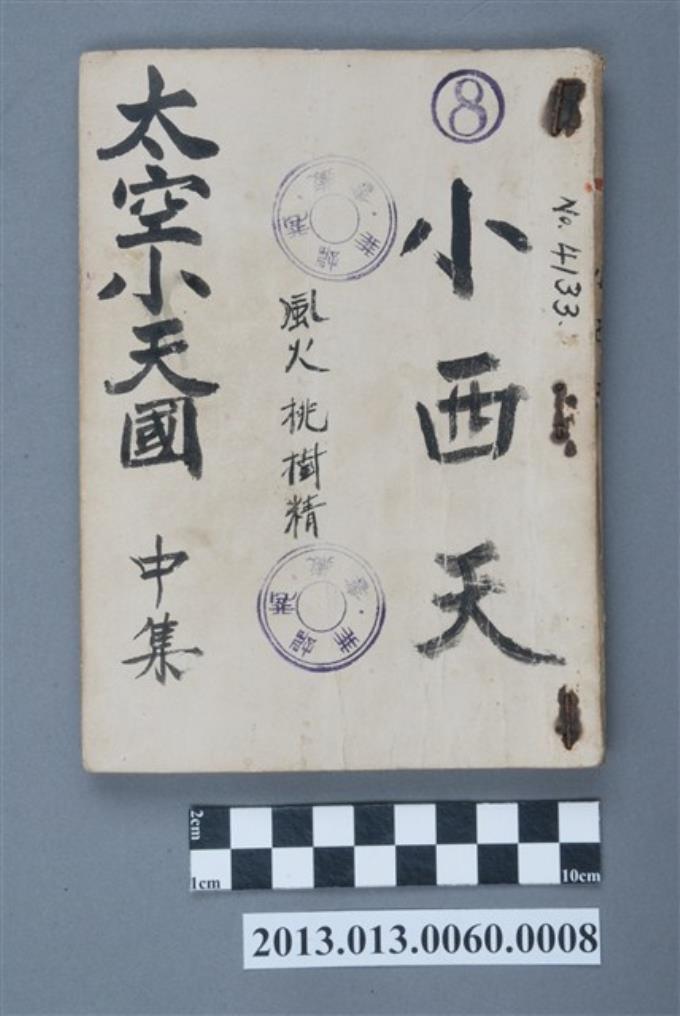 ⑧
No. 4133.
小西天
風火 桃樹精
太空小天國 中集
2cm
1cm
10cm
2013.013.0060.0008